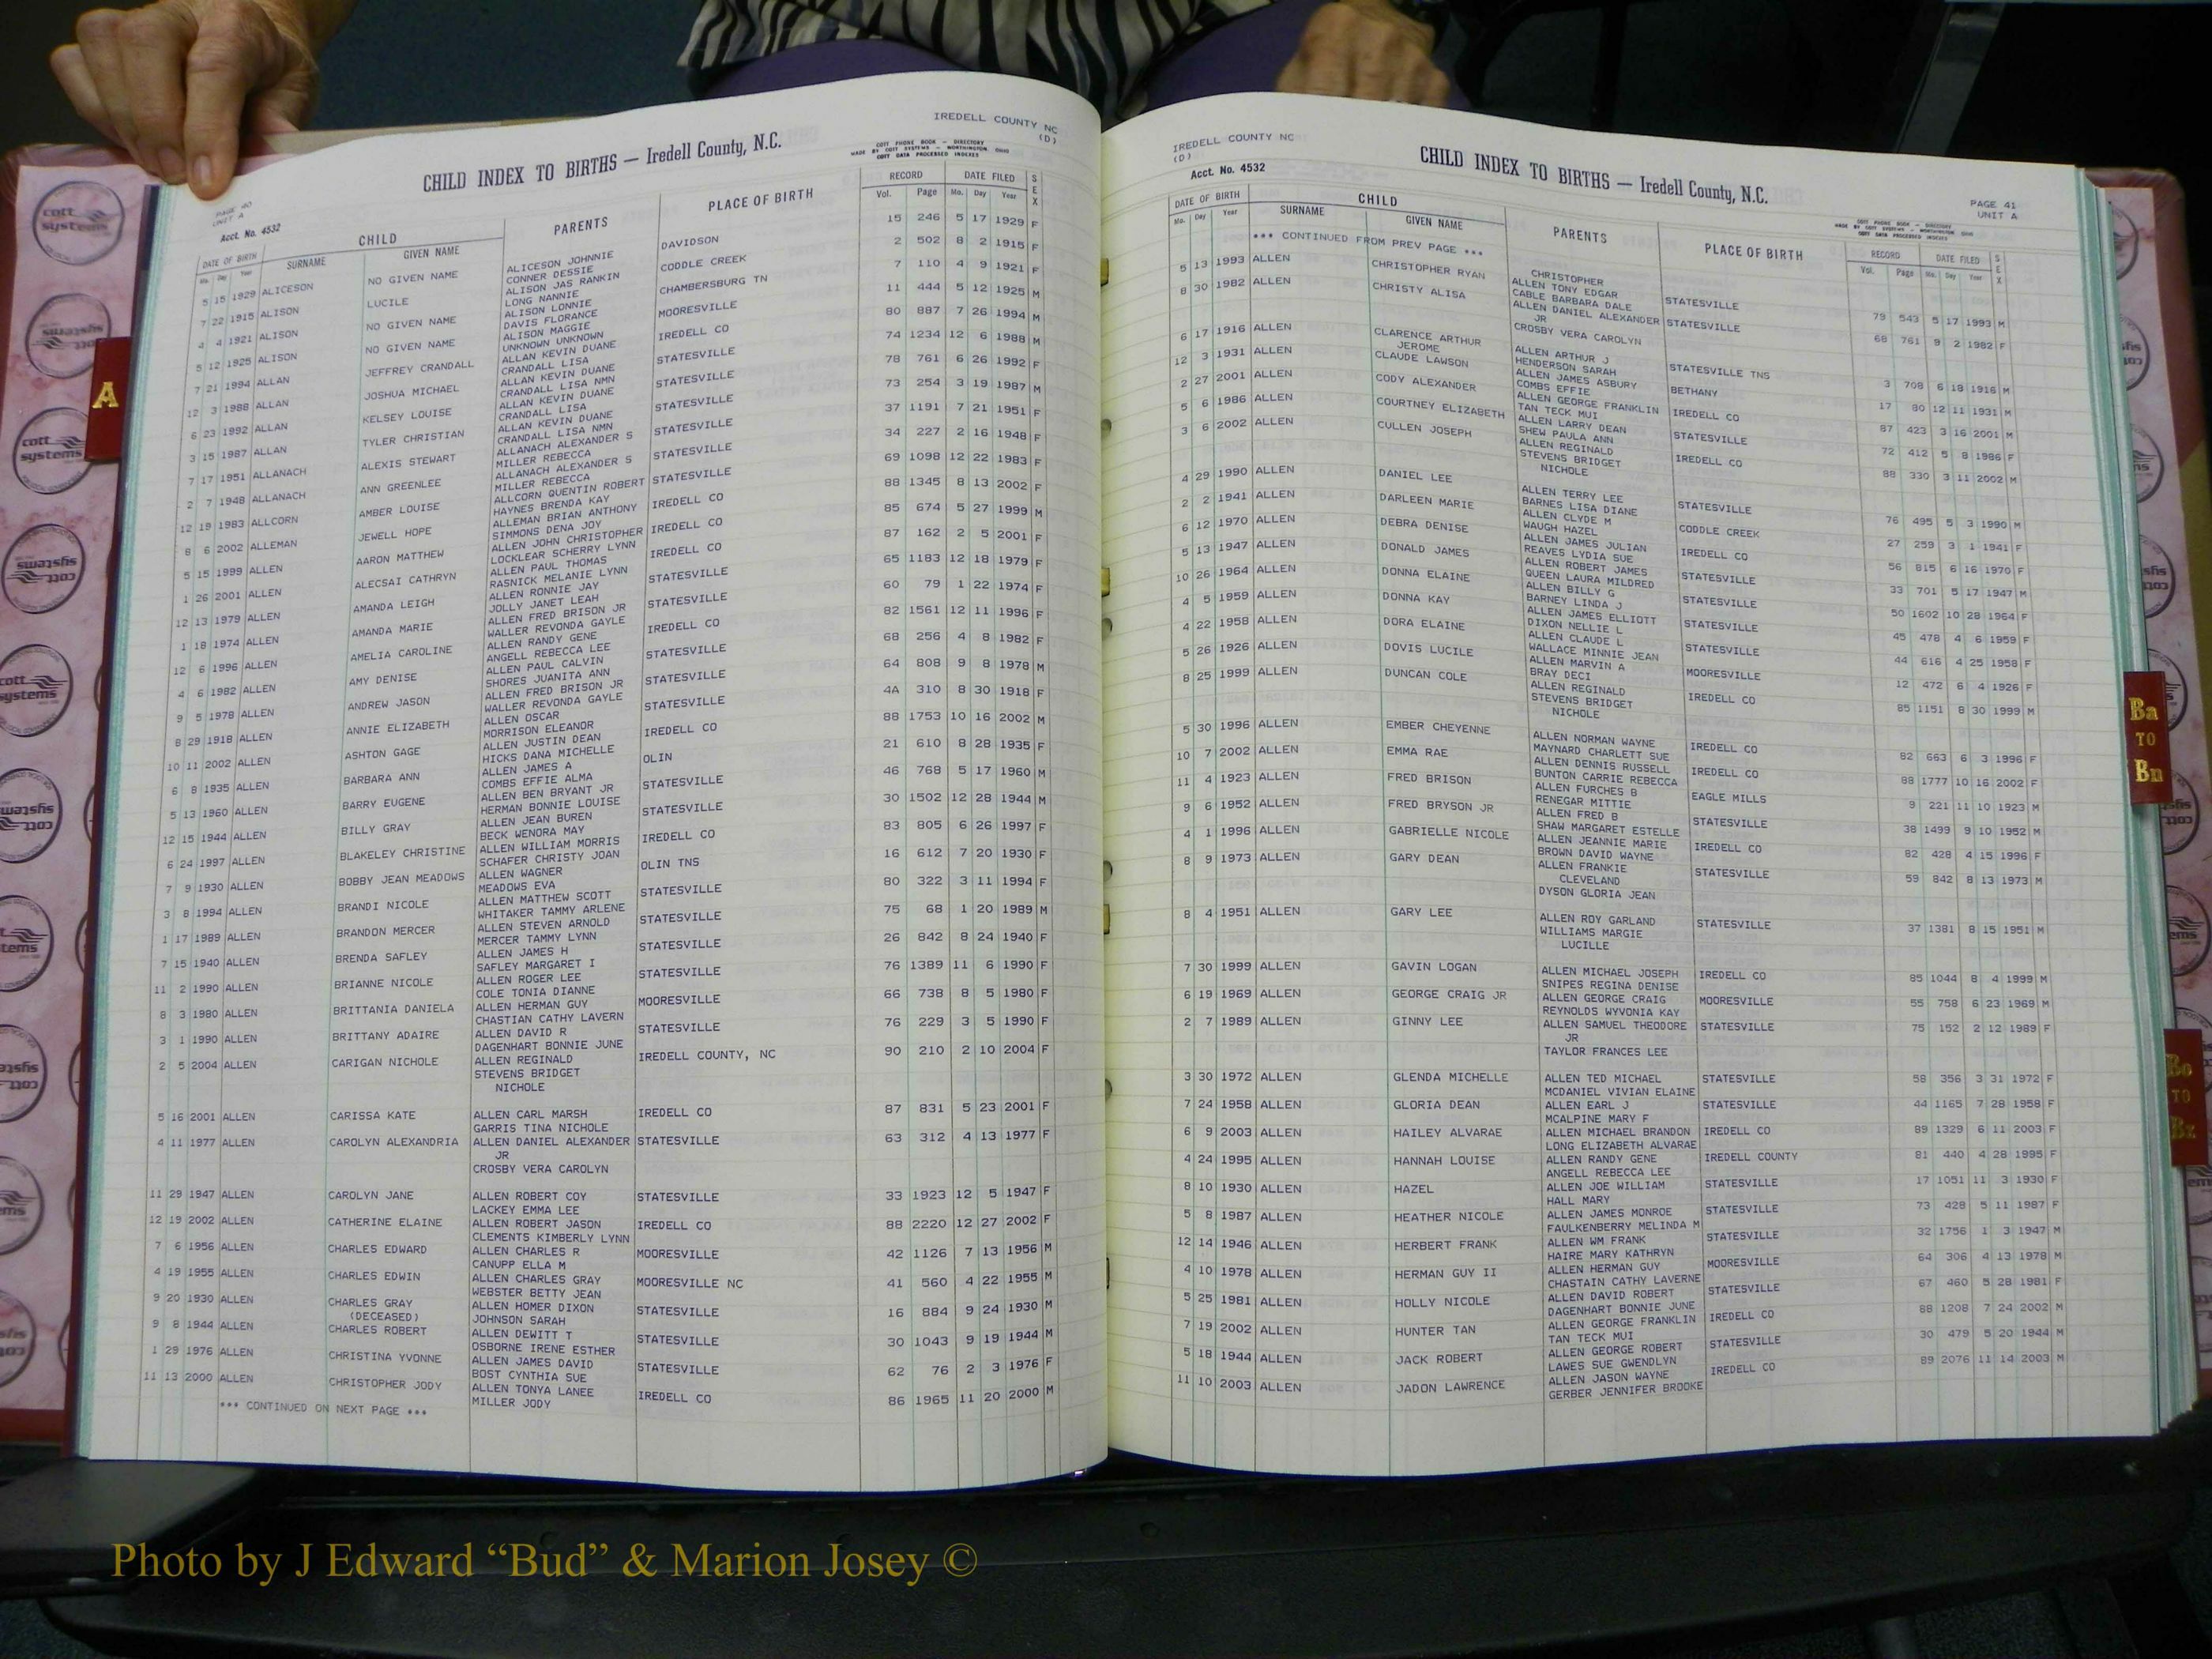 IREDELL COUNTY NC
(D)
CHILD INDEX TO BIRTHS — Iredell County, N.C.
COTT PHONE BOOK — DIRECTORY
MADE BY COTT SYSTEMS — WORTHINGTON OHIO
COTT DATA PROCESSED INDEXES
PAGE 40
UNIT A
Acct. No. 4532
DATE OF BIRTH CHILD PARENTS PLACE OF BIRTH RECORD DATE FILED SEX
Mo. Day Year SURNAME GIVEN NAME Vol. Page Mo. Day Year
5 15 1929 ALICESON NO GIVEN NAME ALICESON JOHNNIE DAVIDSON 15 246 5 17 1929 F
CONNER DESSIE
7 22 1915 ALISON LUCILE ALISON JAS RANKIN CODDLE CREEK 2 502 8 2 1915 F
LONG NANNIE
4 4 1921 ALISON NO GIVEN NAME ALISON LONNIE CHAMBERSBURG TN 7 110 4 9 1921 F
DAVIS FLORANCE
5 12 1925 ALISON NO GIVEN NAME ALISON MAGGIE MOORESVILLE 11 444 5 12 1925 M
UNKNOWN UNKNOWN
7 21 1994 ALLAN JEFFREY CRANDALL ALLAN KEVIN DUANE IREDELL CO 80 887 7 26 1994 M
CRANDALL LISA
12 3 1988 ALLAN JOSHUA MICHAEL ALLAN KEVIN DUANE STATESVILLE 74 1234 12 6 1988 M
CRANDALL LISA NMN
6 23 1992 ALLAN KELSEY LOUISE ALLAN KEVIN DUANE STATESVILLE 78 761 6 26 1992 F
CRANDALL LISA
3 15 1987 ALLAN TYLER CHRISTIAN ALLAN KEVIN DUANE STATESVILLE 73 254 3 19 1987 M
CRANDALL LISA NMN
7 17 1951 ALLANACH ALEXIS STEWART ALLANACH ALEXANDER S STATESVILLE 37 1191 7 21 1951 F
MILLER REBECCA
2 7 1948 ALLANACH ANN GREENLEE ALLANACH ALEXANDER S STATESVILLE 34 227 2 16 1948 F
MILLER REBECCA
12 19 1983 ALLCORN AMBER LOUISE ALLCORN QUENTIN ROBERT STATESVILLE 69 1098 12 22 1983 F
HAYNES BRENDA KAY
8 6 2002 ALLEMAN JEWELL HOPE ALLEMAN BRIAN ANTHONY IREDELL CO 88 1345 8 13 2002 F
SIMMONS DENA JOY
5 15 1999 ALLEN AARON MATTHEW ALLEN JOHN CHRISTOPHER IREDELL CO 85 674 5 27 1999 M
LOCKLEAR SCHERRY LYNN
1 26 2001 ALLEN ALECSAI CATHRYN ALLEN PAUL THOMAS IREDELL CO 87 162 2 5 2001 F
RASNICK MELANIE LYNN
12 13 1979 ALLEN AMANDA LEIGH ALLEN RONNIE JAY STATESVILLE 65 1183 12 18 1979 F
JOLLY JANET LEAH
1 18 1974 ALLEN AMANDA MARIE ALLEN FRED BRISON JR STATESVILLE 60 79 1 22 1974 F
WALLER REVONDA GAYLE
12 6 1996 ALLEN AMELIA CAROLINE ALLEN RANDY GENE IREDELL CO 82 1561 12 11 1996 F
ANGELL REBECCA LEE
4 6 1982 ALLEN AMY DENISE ALLEN PAUL CALVIN STATESVILLE 68 256 4 8 1982 F
SHORES JUANITA ANN
9 5 1978 ALLEN ANDREW JASON ALLEN FRED BRISON JR STATESVILLE 64 808 9 8 1978 M
WALLER REVONDA GAYLE
8 29 1918 ALLEN ANNIE ELIZABETH ALLEN OSCAR STATESVILLE 4A 310 8 30 1918 F
MORRISON ELEANOR
10 11 2002 ALLEN ASHTON GAGE ALLEN JUSTIN DEAN IREDELL CO 88 1753 10 16 2002 M
HICKS DANA MICHELLE
6 8 1935 ALLEN BARBARA ANN ALLEN JAMES A OLIN 21 610 8 28 1935 F
COMBS EFFIE ALMA
5 13 1960 ALLEN BARRY EUGENE ALLEN BEN BRYANT JR STATESVILLE 46 768 5 17 1960 M
HERMAN BONNIE LOUISE
12 15 1944 ALLEN BILLY GRAY ALLEN JEAN BUREN STATESVILLE 30 1502 12 28 1944 M
BECK WENORA MAY
6 24 1997 ALLEN BLAKELEY CHRISTINE ALLEN WILLIAM MORRIS IREDELL CO 83 805 6 26 1997 F
SCHAFER CHRISTY JOAN
7 9 1930 ALLEN BOBBY JEAN MEADOWS ALLEN WAGNER OLIN TNS 16 612 7 20 1930 F
MEADOWS EVA
3 8 1994 ALLEN BRANDI NICOLE ALLEN MATTHEW SCOTT STATESVILLE 80 322 3 11 1994 F
WHITAKER TAMMY ARLENE
1 17 1989 ALLEN BRANDON MERCER ALLEN STEVEN ARNOLD STATESVILLE 75 68 1 20 1989 M
MERCER TAMMY LYNN
7 15 1940 ALLEN BRENDA SAFLEY ALLEN JAMES H STATESVILLE 26 842 8 24 1940 F
SAFLEY MARGARET I
11 2 1990 ALLEN BRIANNE NICOLE ALLEN ROGER LEE STATESVILLE 76 1389 11 6 1990 F
COLE TONIA DIANNE
8 3 1980 ALLEN BRITTANIA DANIELA ALLEN HERMAN GUY MOORESVILLE 66 738 8 5 1980 F
CHASTIAN CATHY LAVERN
3 1 1990 ALLEN BRITTANY ADAIRE ALLEN DAVID R STATESVILLE 76 229 3 5 1990 F
DAGENHART BONNIE JUNE
2 5 2004 ALLEN CARIGAN NICHOLE ALLEN REGINALD IREDELL COUNTY, NC 90 210 2 10 2004 F
STEVENS BRIDGET
NICHOLE
5 16 2001 ALLEN CARISSA KATE ALLEN CARL MARSH IREDELL CO 87 831 5 23 2001 F
GARRIS TINA NICHOLE
4 11 1977 ALLEN CAROLYN ALEXANDRIA ALLEN DANIEL ALEXANDER STATESVILLE 63 312 4 13 1977 F
JR
CROSBY VERA CAROLYN
11 29 1947 ALLEN CAROLYN JANE ALLEN ROBERT COY STATESVILLE 33 1923 12 5 1947 F
LACKEY EMMA LEE
12 19 2002 ALLEN CATHERINE ELAINE ALLEN ROBERT JASON IREDELL CO 88 2220 12 27 2002 F
CLEMENTS KIMBERLY LYNN
7 6 1956 ALLEN CHARLES EDWARD ALLEN CHARLES R MOORESVILLE 42 1126 7 13 1956 M
CANUPP ELLA M
4 19 1955 ALLEN CHARLES EDWIN ALLEN CHARLES GRAY MOORESVILLE NC 41 560 4 22 1955 M
WEBSTER BETTY JEAN
9 20 1930 ALLEN CHARLES GRAY ALLEN HOMER DIXON STATESVILLE 16 884 9 24 1930 M
(DECEASED) JOHNSON SARAH
9 8 1944 ALLEN CHARLES ROBERT ALLEN DEWITT T STATESVILLE 30 1043 9 19 1944 M
OSBORNE IRENE ESTHER
1 29 1976 ALLEN CHRISTINA YVONNE ALLEN JAMES DAVID STATESVILLE 62 76 2 3 1976 F
BOST CYNTHIA SUE
11 13 2000 ALLEN CHRISTOPHER JODY ALLEN TONYA LANEE IREDELL CO 86 1965 11 20 2000 M
MILLER JODY
*** CONTINUED ON NEXT PAGE ***
IREDELL COUNTY NC
(D)
Acct. No. 4532
CHILD INDEX TO BIRTHS — Iredell County, N.C.
PAGE 41
UNIT A
COTT PHONE BOOK — DIRECTORY
MADE BY COTT SYSTEMS — WORTHINGTON OHIO
COTT DATA PROCESSED INDEXES
DATE OF BIRTH CHILD PARENTS PLACE OF BIRTH RECORD DATE FILED SEX
Mo. Day Year SURNAME GIVEN NAME Vol. Page Mo. Day Year
*** CONTINUED FROM PREV PAGE ***
CHRISTOPHER
5 13 1993 ALLEN CHRISTOPHER RYAN ALLEN TONY EDGAR STATESVILLE 79 543 5 17 1993 M
CABLE BARBARA DALE
8 30 1982 ALLEN CHRISTY ALISA ALLEN DANIEL ALEXANDER STATESVILLE 68 761 9 2 1982 F
JR
CROSBY VERA CAROLYN
6 17 1916 ALLEN CLARENCE ARTHUR ALLEN ARTHUR J STATESVILLE TNS 3 708 6 18 1916 M
JEROME HENDERSON SARAH
12 3 1931 ALLEN CLAUDE LAWSON ALLEN JAMES ASBURY BETHANY 17 80 12 11 1931 M
COMBS EFFIE
2 27 2001 ALLEN CODY ALEXANDER ALLEN GEORGE FRANKLIN IREDELL CO 87 423 3 16 2001 M
TAN TECK MUI
5 6 1986 ALLEN COURTNEY ELIZABETH ALLEN LARRY DEAN STATESVILLE 72 412 5 8 1986 F
SHEW PAULA ANN
3 6 2002 ALLEN CULLEN JOSEPH ALLEN REGINALD IREDELL CO 88 330 3 11 2002 M
STEVENS BRIDGET
NICHOLE
4 29 1990 ALLEN DANIEL LEE ALLEN TERRY LEE STATESVILLE 76 495 5 3 1990 M
BARNES LISA DIANE
2 2 1941 ALLEN DARLEEN MARIE ALLEN CLYDE M CODDLE CREEK 27 259 3 1 1941 F
WAUGH HAZEL
6 12 1970 ALLEN DEBRA DENISE ALLEN JAMES JULIAN IREDELL CO 56 815 6 16 1970 F
REAVES LYDIA SUE
5 13 1947 ALLEN DONALD JAMES ALLEN ROBERT JAMES STATESVILLE 33 701 5 17 1947 M
QUEEN LAURA MILDRED
10 26 1964 ALLEN DONNA ELAINE ALLEN BILLY G STATESVILLE 50 1602 10 28 1964 F
BARNEY LINDA J
4 5 1959 ALLEN DONNA KAY ALLEN JAMES ELLIOTT STATESVILLE 45 478 4 6 1959 F
DIXON NELLIE L
4 22 1958 ALLEN DORA ELAINE ALLEN CLAUDE L STATESVILLE 44 616 4 25 1958 F
WALLACE MINNIE JEAN
5 26 1926 ALLEN DOVIS LUCILE ALLEN MARVIN A MOORESVILLE 12 472 6 4 1926 F
BRAY DECI
8 25 1999 ALLEN DUNCAN COLE ALLEN REGINALD IREDELL CO 85 1151 8 30 1999 M
STEVENS BRIDGET
NICHOLE
5 30 1996 ALLEN EMBER CHEYENNE ALLEN NORMAN WAYNE IREDELL CO 82 663 6 3 1996 F
MAYNARD CHARLETT SUE
10 7 2002 ALLEN EMMA RAE ALLEN DENNIS RUSSELL IREDELL CO 88 1777 10 16 2002 F
BUNTON CARRIE REBECCA
11 4 1923 ALLEN FRED BRISON ALLEN FURCHES B EAGLE MILLS 9 221 11 10 1923 M
RENEGAR MITTIE
9 6 1952 ALLEN FRED BRYSON JR ALLEN FRED B STATESVILLE 38 1499 9 10 1952 M
SHAW MARGARET ESTELLE
4 1 1996 ALLEN GABRIELLE NICOLE ALLEN JEANNIE MARIE IREDELL CO 82 428 4 15 1996 F
BROWN DAVID WAYNE
8 9 1973 ALLEN GARY DEAN ALLEN FRANKIE STATESVILLE 59 842 8 13 1973 M
CLEVELAND
DYSON GLORIA JEAN
8 4 1951 ALLEN GARY LEE ALLEN ROY GARLAND STATESVILLE 37 1381 8 15 1951 M
WILLIAMS MARGIE
LUCILLE
7 30 1999 ALLEN GAVIN LOGAN ALLEN MICHAEL JOSEPH IREDELL CO 85 1044 8 4 1999 M
SNIPES REGINA DENISE
6 19 1969 ALLEN GEORGE CRAIG JR ALLEN GEORGE CRAIG MOORESVILLE 55 758 6 23 1969 M
REYNOLDS WYVONIA KAY
2 7 1989 ALLEN GINNY LEE ALLEN SAMUEL THEODORE STATESVILLE 75 152 2 12 1989 F
JR
TAYLOR FRANCES LEE
3 30 1972 ALLEN GLENDA MICHELLE ALLEN TED MICHAEL STATESVILLE 58 356 3 31 1972 F
MCDANIEL VIVIAN ELAINE
7 24 1958 ALLEN GLORIA DEAN ALLEN EARL J STATESVILLE 44 1165 7 28 1958 F
MCALPINE MARY F
6 9 2003 ALLEN HAILEY ALVARAE ALLEN MICHAEL BRANDON IREDELL CO 89 1329 6 11 2003 F
LONG ELIZABETH ALVARAE
4 24 1995 ALLEN HANNAH LOUISE ALLEN RANDY GENE IREDELL COUNTY 81 440 4 28 1995 F
ANGELL REBECCA LEE
8 10 1930 ALLEN HAZEL ALLEN JOE WILLIAM STATESVILLE 17 1051 11 3 1930 F
HALL MARY
5 8 1987 ALLEN HEATHER NICOLE ALLEN JAMES MONROE STATESVILLE 73 428 5 11 1987 F
FAULKENBERRY MELINDA M
12 14 1946 ALLEN HERBERT FRANK ALLEN WM FRANK STATESVILLE 32 1756 1 3 1947 M
HAIRE MARY KATHRYN
4 10 1978 ALLEN HERMAN GUY II ALLEN HERMAN GUY MOORESVILLE 64 306 4 13 1978 M
CHASTAIN CATHY LAVERNE
5 25 1981 ALLEN HOLLY NICOLE ALLEN DAVID ROBERT STATESVILLE 67 460 5 28 1981 F
DAGENHART BONNIE JUNE
7 19 2002 ALLEN HUNTER TAN ALLEN GEORGE FRANKLIN IREDELL CO 88 1208 7 24 2002 M
TAN TECK MUI
5 18 1944 ALLEN JACK ROBERT ALLEN GEORGE ROBERT STATESVILLE 30 479 5 20 1944 M
LAWES SUE GWENDLYN
11 10 2003 ALLEN JADON LAWRENCE ALLEN JASON WAYNE IREDELL CO 89 2076 11 14 2003 M
GERBER JENNIFER BROOKE
A
Ba
TO
Bn
Bo
TO
Bz
cott
systems
Photo by J Edward “Bud” & Marion Josey ©